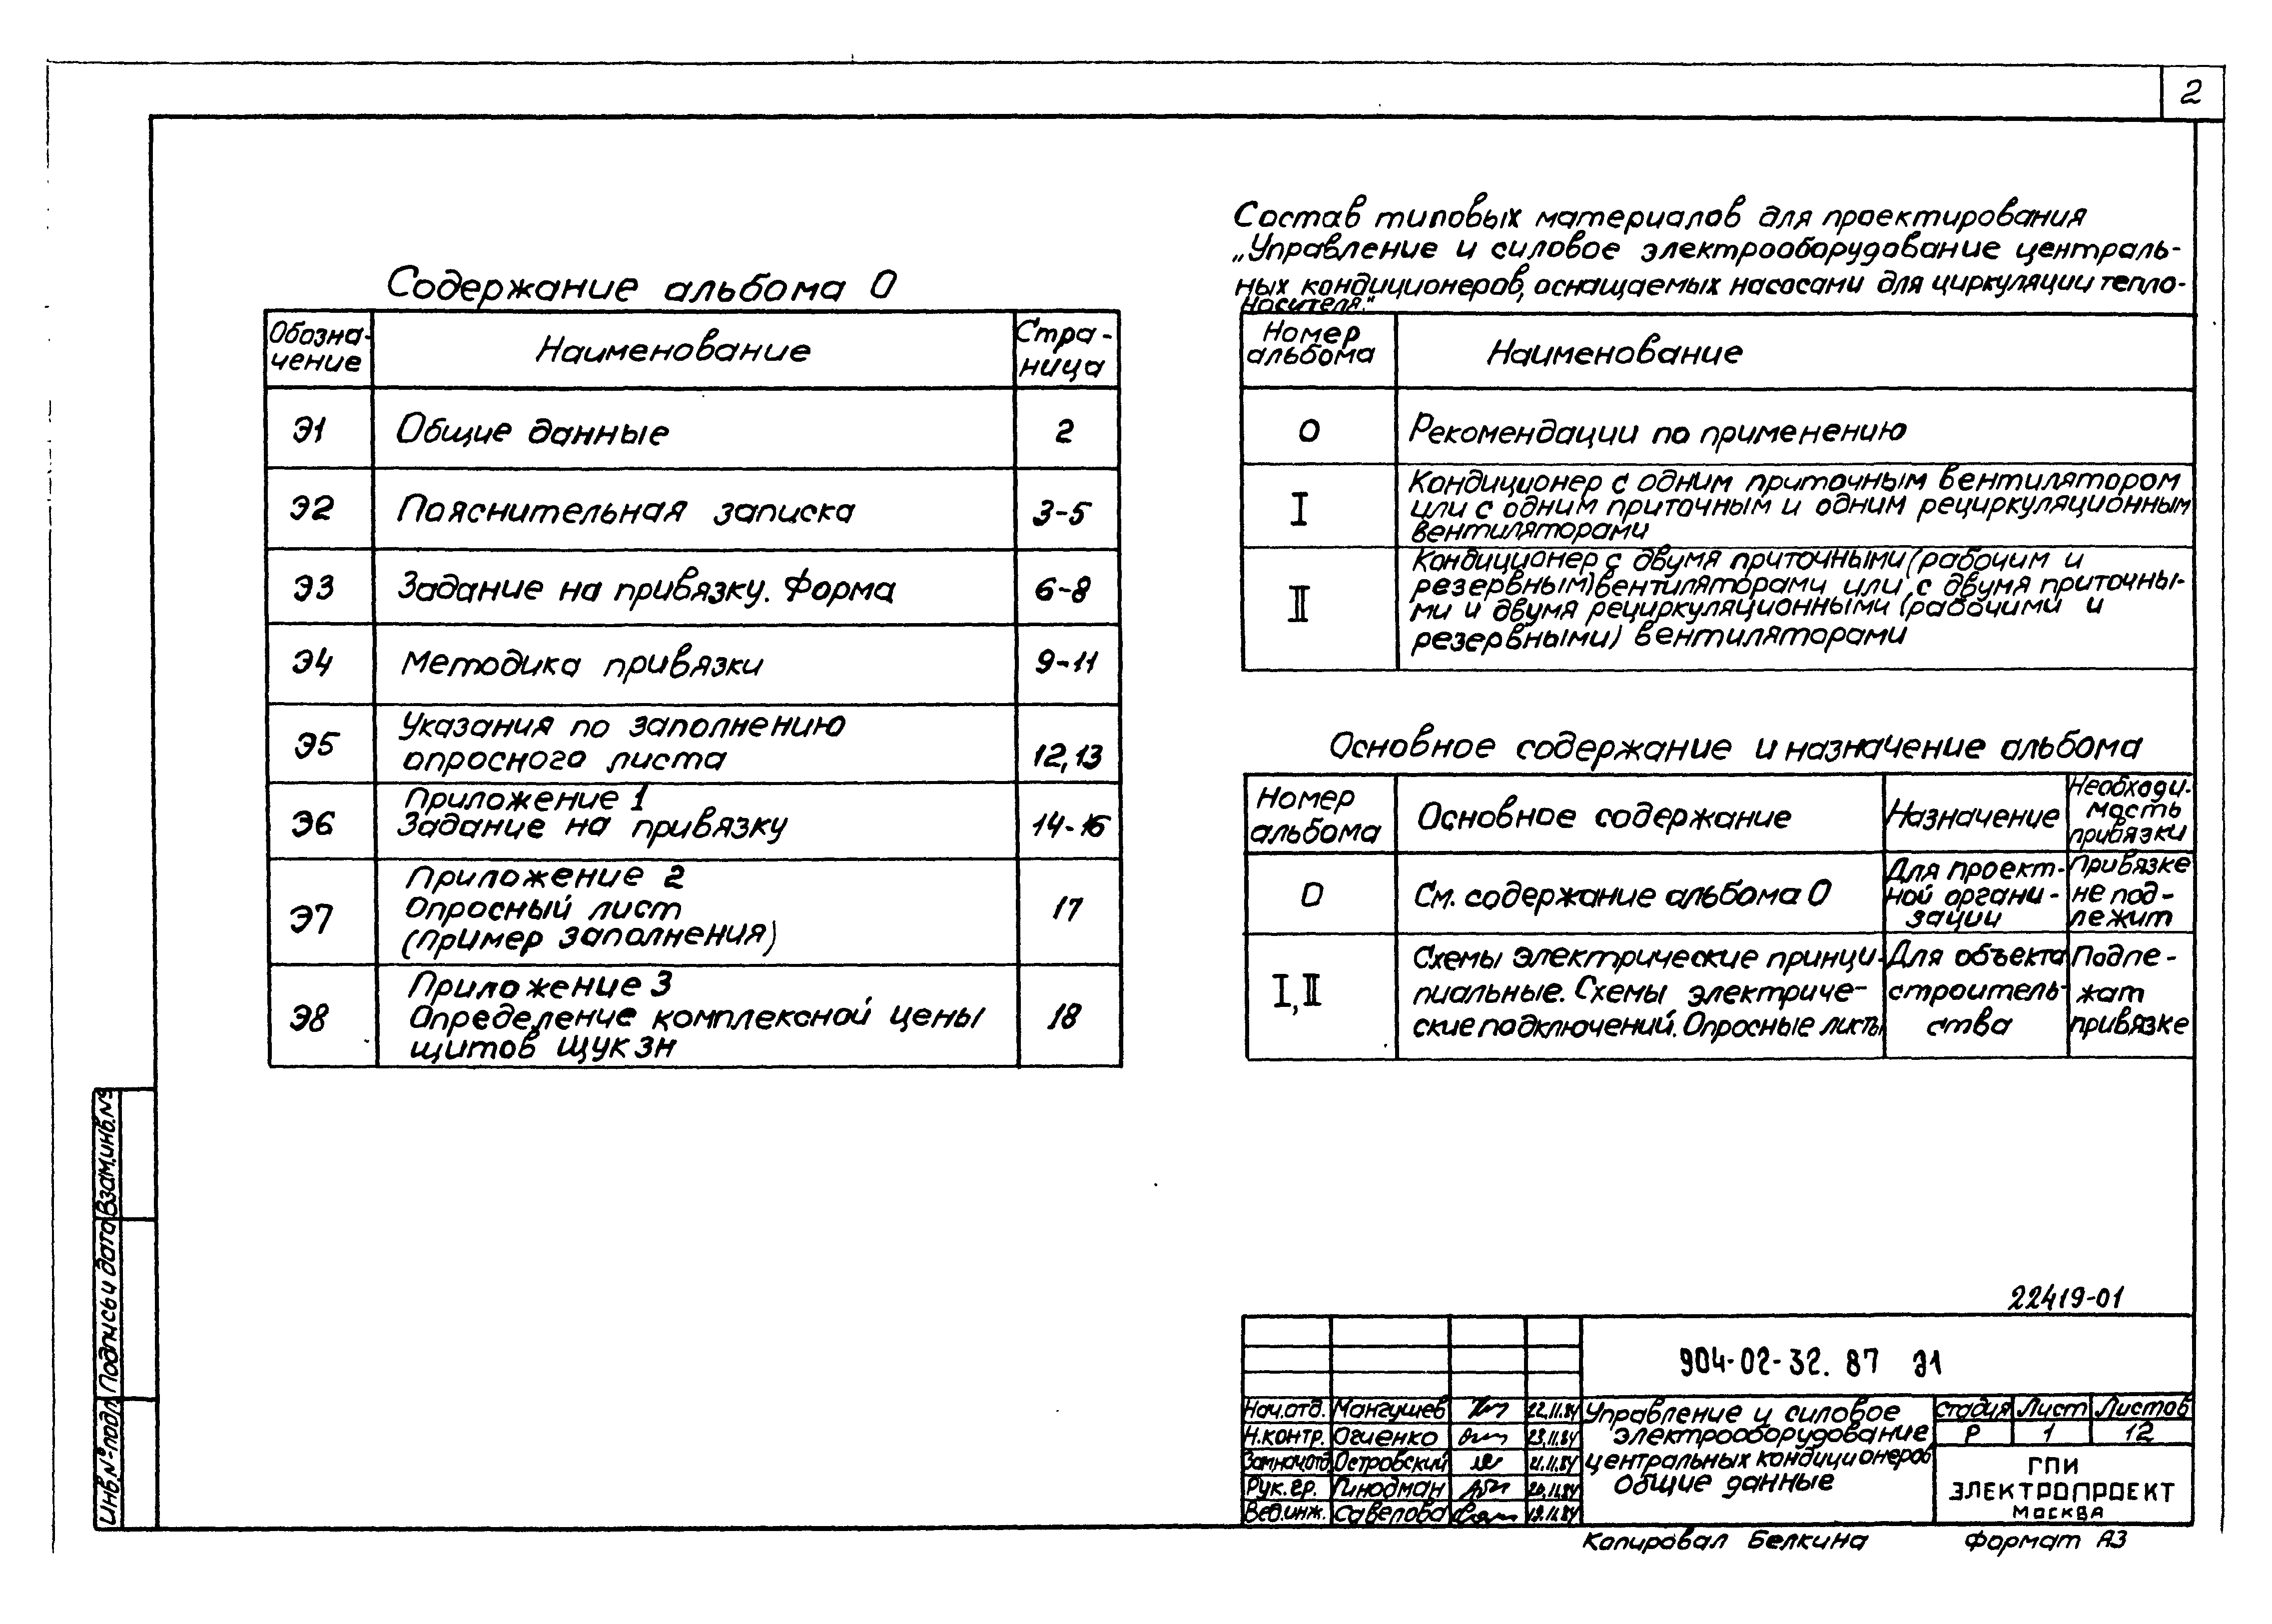 2
Содержание альбома 0
Обозна-
чение
Наименование
Стра-
ница
Э1
Общие данные
2
Э2
Пояснительная записка
3-5
Э3
Задание на привязку. Форма
6-8
Э4
Методика привязки
9-11
Э5
Указания по заполнению
опросного листа
12,13
Э6
Приложение 1
Задание на привязку
14-16
Э7
Приложение 2
Опросный лист
(Пример заполнения)
17
Э8
Приложение 3
Определение комплексной цены
щитов ЩУК3Н
18
Состав типовых материалов для проектирования
„Управление и силовое электрооборудование централь-
ных кондиционеров, оснащаемых насосами для циркуляции тепло-
носителя."
Номер
альбома
Наименование
0
Рекомендации по применению
I
Кондиционер с одним приточным вентилятором
или с одним приточным и одним рециркуляционным
вентиляторами
II
Кондиционер с двумя приточными (рабочим и
резервным) вентиляторами или с двумя приточны-
ми и двумя рециркуляционными (рабочими и
резервными) вентиляторами
Основное содержание и назначение альбома
Номер
альбома
Основное содержание
Назначение
Необходи-
мость
привязки
0
См. содержание альбома 0
Для проект-
ной органи-
зации
Привязке
не под-
лежит
I, II
Схемы электрические принци-
пиальные. Схемы электриче-
ские подключений. Опросные листы
Для объекта
строитель-
ства
Подле-
жат
привязке
Взам.инв.№
Подпись и дата
Инв.№ подл.
22419-01
904-02-32.87 Э1
Нач.отд. Мангушев 22.11.84
Н.контр. Огиенко 23.11.84
Зам.нач.отд. Островский 21.11.84
Рук.гр. Гинодман 20.11.84
Вед.инж. Савелова 19.11.84
Управление и силовое
электрооборудование
центральных кондиционеров
Общие данные
Стадия Лист Листов
Р 1 12
ГПИ
ЭЛЕКТРОПРОЕКТ
МОСКВА
Копировал Белкина
Формат А3